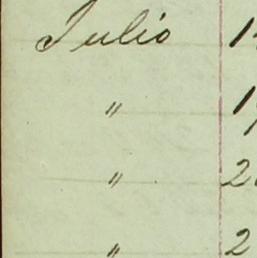 Julio 1
" 1
" 2
" 2